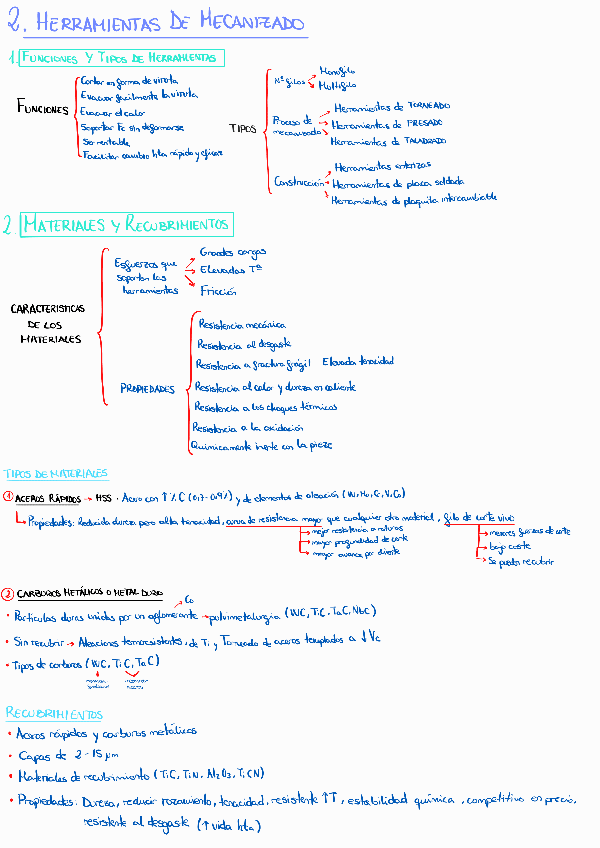 2. HERRAMIENTAS DE MECANIZADO
1. FUNCIONES Y TIPOS DE HERRAMIENTAS
FUNCIONES
Cortar en forma de viruta
Evacuar facilmente la viruta
Evacuar el calor
Soportar Fc sin deformarse
Ser rentable
Facilitar cambio hta rápido y eficaz
TIPOS
Nº filos
Monofilo
Multifilo
Proceso de mecanizado
Herramientas de TORNEADO
Herramientas de FRESADO
Herramientas de TALADRADO
Construcción
Herramientas enterizas
Herramientas de placa soldada
Herramientas de plaquita intercambiable
2. MATERIALES Y RECUBRIMIENTOS
CARACTERISTICAS
DE LOS
MATERIALES
Esfuerzos que
soportan las
herramientas
Grandes cargas
Elevadas Tª
Fricción
PROPIEDADES
Resistencia mecánica
Resistencia al desgaste
Resistencia a fractura frágil Elevada tenacidad
Resistencia al calor y dureza en caliente
Resistencia a los choques térmicos
Resistencia a la oxidación
Quimicamente inerte con la pieza
TIPOS DE MATERIALES
1 ACEROS RÁPIDOS → HSS. Acero con ↑ % C (0,7-0,9%) y de elementos de aleación (W, Mo, Cr, V, Co)
Propiedades: Reducida dureza pero alta tenacidad, curva de resistencia mayor que cualquier otro material, filo de corte vivo
mejor resistencia a roturas
mayor profundidad de corte
mayor avance por diente
menores fuerzas de corte
bajo coste
Se pueden recubrir
2 CARBUROS METÁLICOS O METAL DURO
Co
• Partículas duras unidas por un aglomerante → pulvimetalurgia (WC, TiC, TaC, NbC)
• Sin recubrir → Aleaciones termoresistentes, de Ti y Torneado de aceros templados a ↓ Vc
• Tipos de carburos (WC, TiC, TaC)
RECUBRIMIENTOS
• Aceros rápidos y carburos metálicos
• Capas de 2-15 µm
• Materiales de recubrimiento (TiC, TiN, Al2O3, TiCN)
• Propiedades: Dureza, reducir rozamiento, tenacidad, resistente ↑T, estabilidad química, competitivo en precio,
resistente al desgaste (↑ vida hta)